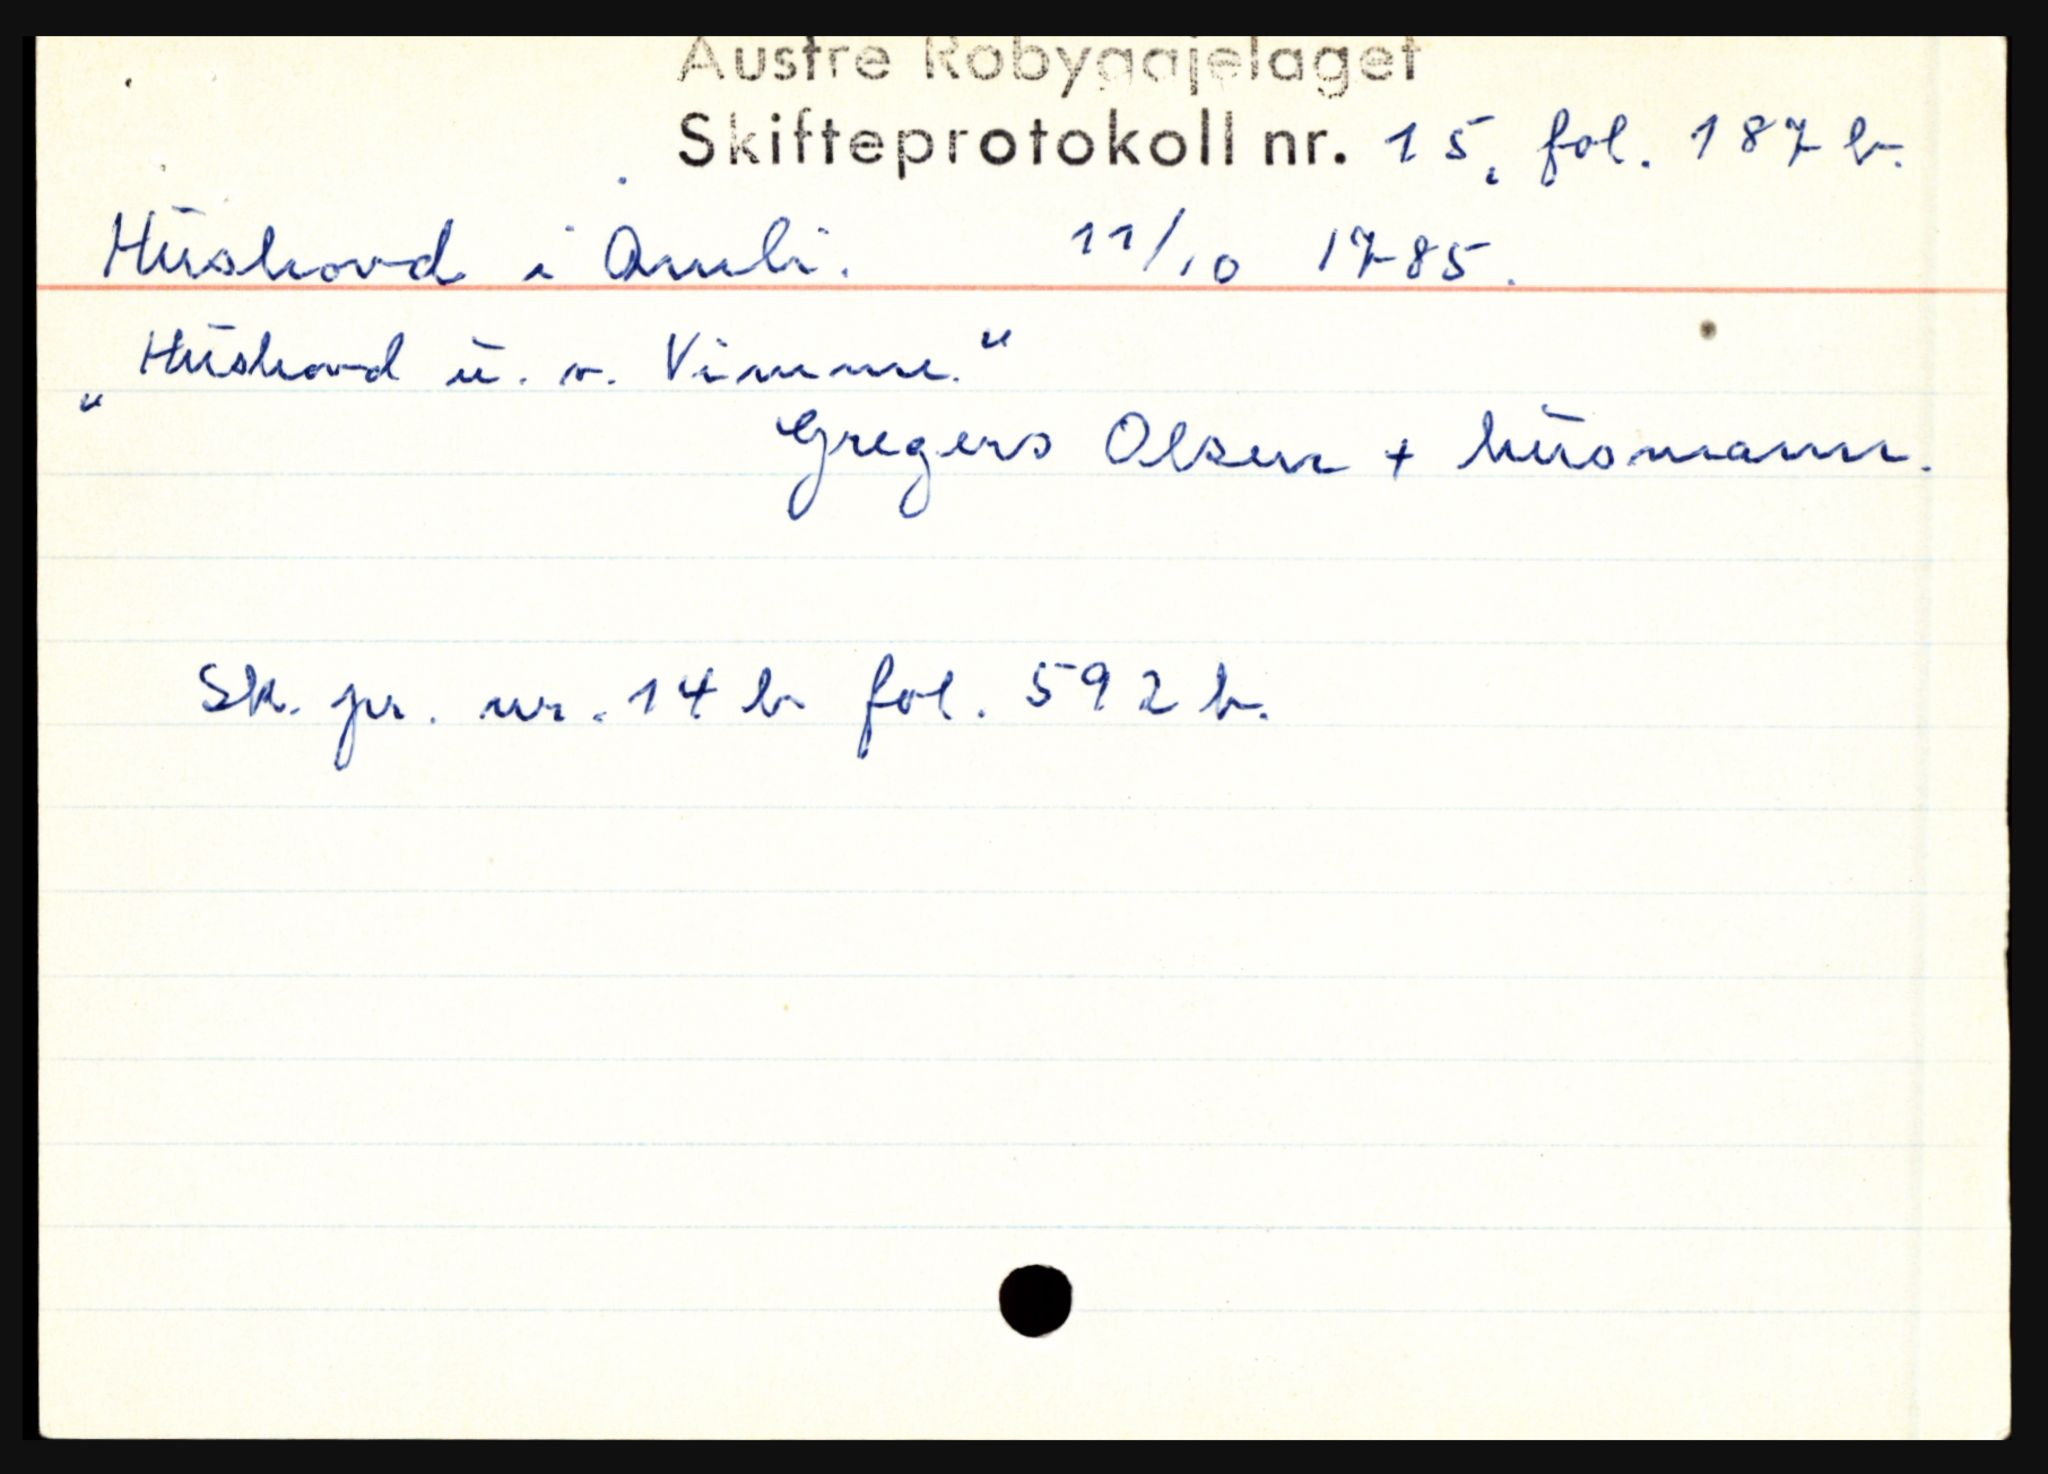 Austre Robyggjelaget
Skifteprotokoll nr. 15, fol. 187 b.
Hushovd i Åmli. 11/10 1785.
"Hushovd u. v. Vimme."
Gregers Olsen + husmann.
Sk. pr. nr. 14 b fol. 592 b.